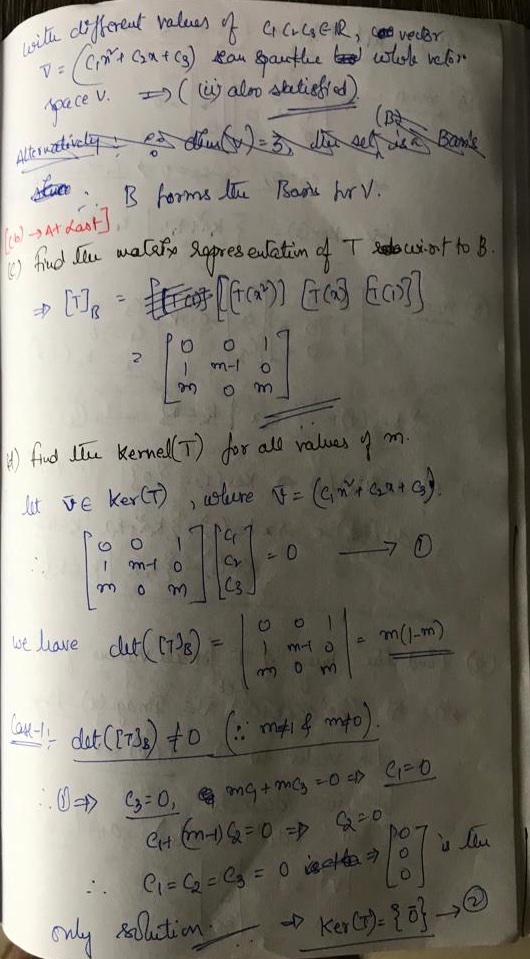 with different values of C₁ C₂ C₃ ∈ ℝ, vector
v̄ = (C₁x² + C₂x + C₃) can span the whole vector
space V. ⇒ ( (ii) also satisfied)
Alternatively : dim(V) = 3, the set (B) is a Basis
∴ B forms the Basis for V.
[(b) → At Last]
(c) Find the matrix representation of T w.r.t to B.
⇒ [T]_B = [[T(x²)] [T(x)] [T(1)]]
= [ 0 0 1
1 m-1 0
m 0 m ]
(d) Find the Kernel(T) for all values of m.
let v̄ ∈ Ker(T) , where v̄ = (C₁x² + C₂x + C₃).
∴ [ 0 0 1 ] [ C₁ ]
[ 1 m-1 0 ] [ C₂ ] = 0 → ①
[ m 0 m ] [ C₃ ]
we have det([T]_B) = | 0 0 1
1 m-1 0
m 0 m | = m(1-m)
Case-1:- det([T]_B) ≠ 0 (∵ m≠1 & m≠0).
∴ ① ⇒ C₃=0, mC₁ + mC₃ = 0 ⇒ C₁=0
C₁+ (m-1) C₂ = 0 ⇒ C₂=0
∴ C₁ = C₂ = C₃ = 0 ⇒ [ 0 0 0 ] is the
only solution. ⇒ Ker(T) = {0̄} → ②